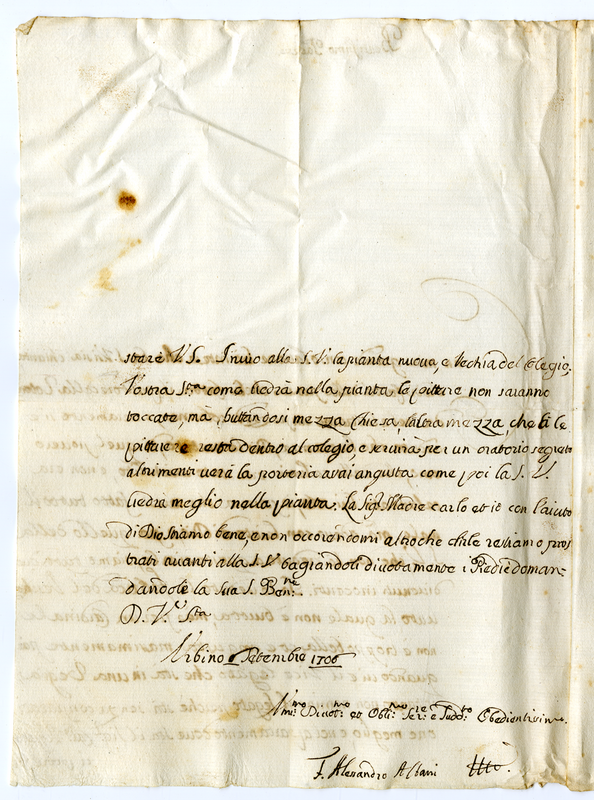 stare V. S. Invio alla S. V. la pianta nuova, e Vechia del Colegio,
Vostra St.ª come vedrà nella pianta le pitture non saranno
toccate, mà buttandosi mezza Chiesa l'altra mezza, che è le
pitture resta dentro al colegio e servirà per un oratorio segreto
altrimenti verà la porteria assai angusta come poi la S. V.
vedrà meglio nella pianta. La Sig. Madre Carlo et io con l'aiuto
di Dio stiamo bene, e non occorendomi altro che restiamo pros
trati avanti alla S. V bagiandoli divotamente i Piedi e doman-
dandole la sua S. Ben.ne
D. V. S.ta
Urbino Setembre 1706
Divot.mo et Obli.mo Ser.re e Sudd.to Obedientissimo.
F. Alesandro Albani